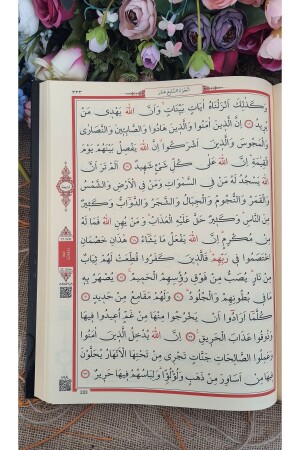 ٣٣٣ الجزء السابع عشر
وَكَذٰلِكَ اَنْزَلْنَاهُ اٰيَاتٍ بَيِّنَاتٍ وَاَنَّ اللّٰهَ يَهْد۪ي مَنْ
يُر۪يدُ ﴿١٦﴾ اِنَّ الَّذ۪ينَ اٰمَنُوا وَالَّذ۪ينَ هَادُوا وَالصَّابِـ۪ٔينَ وَالنَّصَارٰى
وَالْمَجُوسَ وَالَّذ۪ينَ اَشْرَكُوا اِنَّ اللّٰهَ يَفْصِلُ بَيْنَهُمْ يَوْمَ
الْقِيٰمَةِ اِنَّ اللّٰهَ عَلٰى كُلِّ شَيْءٍ شَه۪يدٌ ﴿١٧﴾ اَلَمْ تَرَ اَنَّ
اللّٰهَ يَسْجُدُ لَهُ مَنْ فِي السَّمٰوَاتِ وَمَنْ فِي الْاَرْضِ وَالشَّمْسُ
وَالْقَمَرُ وَالنُّجُومُ وَالْجِبَالُ وَالشَّجَرُ وَالدَّوَٓابُّ وَكَث۪يرٌ
مِنَ النَّاسِ وَكَث۪يرٌ حَقَّ عَلَيْهِ الْعَذَابُ وَمَنْ يُهِنِ اللّٰهُ فَمَا لَهُ
مِنْ مُكْرِمٍ اِنَّ اللّٰهَ يَفْعَلُ مَا يَشَٓاءُ ﴿١٨﴾ هٰذَانِ خَصْمَانِ
اخْتَصَمُوا ف۪ي رَبِّهِمْ فَالَّذ۪ينَ كَفَرُوا قُطِّعَتْ لَهُمْ ثِيَابٌ
مِنْ نَارٍ يُصَبُّ مِنْ فَوْقِ رُؤُ۫سِهِمُ الْحَم۪يمُ ﴿١٩﴾ يُصْهَرُ بِه۪
مَا ف۪ي بُطُونِهِمْ وَالْجُلُودُ ﴿٢٠﴾ وَلَهُمْ مَقَامِعُ مِنْ حَد۪يدٍ ﴿٢١﴾
كُلَّمَٓا اَرَادُٓوا اَنْ يَخْرُجُوا مِنْهَا مِنْ غَمٍّ اُع۪يدُوا ف۪يهَا
وَذُوقُوا عَذَابَ الْحَر۪يقِ ﴿٢٢﴾ اِنَّ اللّٰهَ يُدْخِلُ الَّذ۪ينَ اٰمَنُوا
وَعَمِلُوا الصَّالِحَاتِ جَنَّاتٍ تَجْر۪ي مِنْ تَحْتِهَا الْاَنْهَارُ يُحَلَّوْنَ
ف۪يهَا مِنْ اَسَاوِرَ مِنْ ذَهَبٍ وَلُؤْلُؤً۬ا وَلِبَاسُهُمْ ف۪يهَا حَر۪يرٌ ﴿٢٣﴾
333